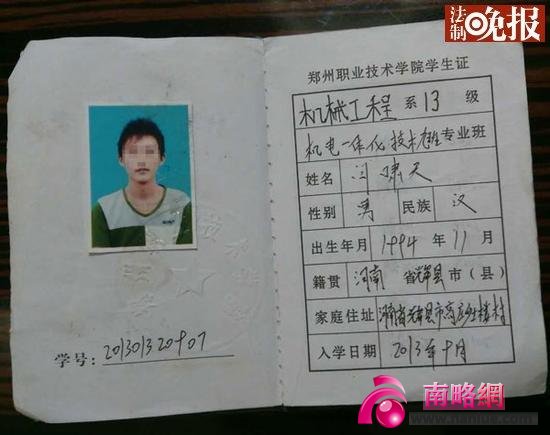 法制晚报
郑州职业技术学院学生证
机械工程 系 13 级
机电一体化技术 专业 班
姓名 闫啸天
性别 男 民族 汉
出生年月 1994 年 11 月
籍贯 河南 省辉县市(县)
家庭住址 河南省辉县市高庄乡 楼村
入学日期 2013年9月
学号: 201301320907
南略網
www.nanlue.com